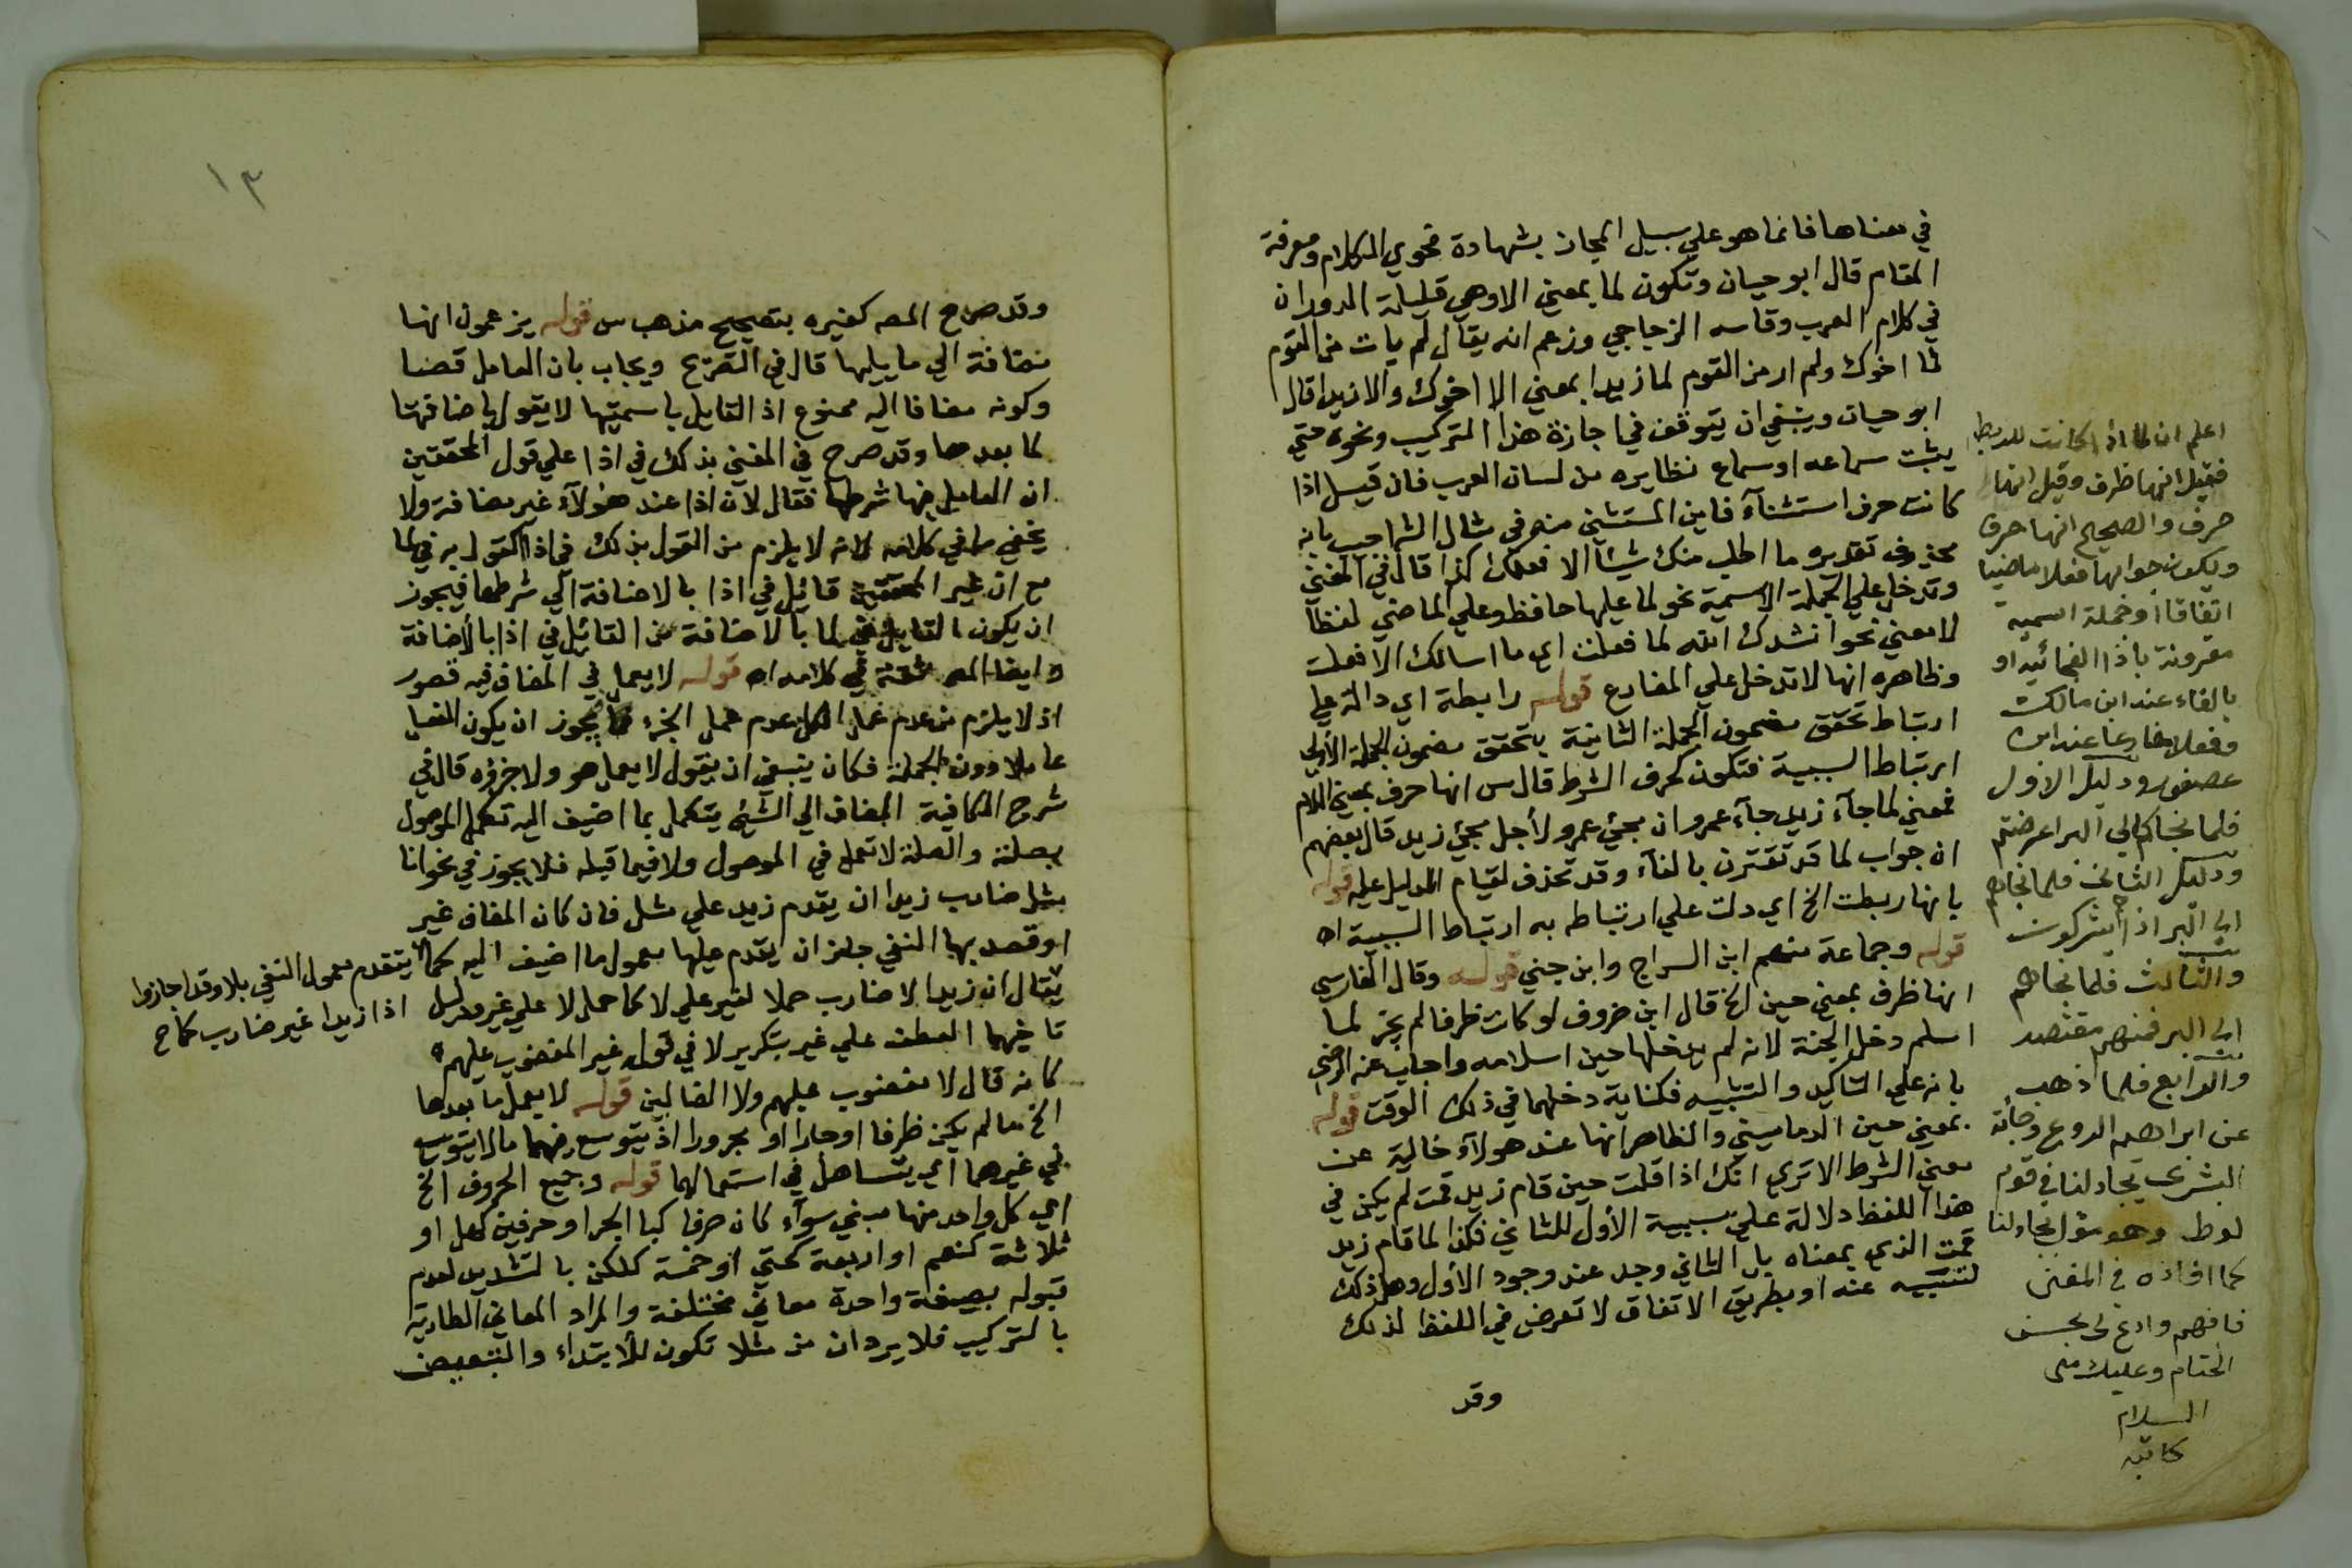 في معناها فانما هو علي سبيل المجاز بشهادة فحوي الكلام ومعرفة
المقام قال ابو حيان وتكون لما بمعني الا وهي قليلة الدوران
في كلام العرب وقاسه الزجاجي وزعم انه يقال لم يات من القوم
لما اخوك ولم ار من القوم لما زيدا بمعني الا اخوك والا زيدا قال
ابو حيان وينبغي ان يتوقف في اجازة هذا التركيب ونحوه حتي
يثبت سماعه او سماع نظايره من لسان العرب فان قيل اذا
كانت حرف استثنآء فاين المستثني منه في مثال الش اجيب بانه
محذوف تقديره ما اطلب منك شيئا الا فعلك كذا قال في المغني
وتدخل علي الجملة الاسمية نحو لما عليها حافظ وعلي الماضي لفظا
لا معني نحو انشدك الله لما فعلت اي ما اسالك الا فعلت
وظاهره انها لا تدخل علي المضارع قوله رابطة اي دالة علي
ارتباط تحقق مضمون الجملة الثانية بتحقق مضمون الجملة الأولي
ارتباط السببية فتكون كحرف الشرط قال س انها حرف بمعني اللام
فمعني لما جآء زيد جآء عمرو ان مجئ عمرو لأجل مجئ زيد قال بعضهم
ان جواب لما قد تقترن بالفآء وقد تحذف لقيام الدليل عليه قوله
بانها ربطت الخ اي دلت علي ارتباطه به ارتباط السببية اه
قوله وجماعة منهم ابن السراج وابن جني قوله وقال الفارسي
انها ظرف بمعني حين الخ قال ابن خروف لو كانت ظرفا لم يجز لما
اسلم دخل الجنة لانه لم يدخلها حين اسلامه واجاب عنه الرضي
بانه علي التاكيد والتشبيه فكناية دخلها في ذلك الوقت قوله
بمعني حين الدماميني والظاهر انها عند هولآء خالية عن
معني الشرط الا تري انك اذا قلت حين قام زيد قمت لم يكن في
هذا اللفظ دلالة علي سببية الأول للثاني فكذا لما قام زيد
قمت الذي بمعناه بل الثاني وجد عند وجود الأول وهل ذلك
لتسببه عنه او بطريق الاتفاق لا تعرض في اللفظ لذلك
وقد
اعلم ان لما اذا كانت للربط
فقيل انها ظرف وقيل انها
حرف والصحيح انها حرف
ويكون جوابها فعلا ماضيا
اتفاقا او جملة اسمية
مقرونة باذا الفجائية او
بالفاء عند ابن مالك
وفعلا مضارعا عند ابن
عصفور ودليل الاول
فلما نجاكم الي البر اعرضتم
ودليل الثاني فلما نجاهم
الي البر اذا هم يشركون
والثالث فلما نجاهم
الي البر فمنهم مقتصد
والرابع فلما ذهب
عن ابراهيم الروع وجاءته
البشرى يجادلنا في قوم
لوط وهو مؤل بجادلنا
كما افاده في المغني
فافهم وادع لي بحسن
الختام وعليك مني
السلام
كاتبه
١٣
وقد صرح المص كغيره بتصحيح مذهب س قوله يزعمون انها
مضافة الي ما يليها قال في التصريح ويجاب بان العامل قضا
وكونه مضافا اليه ممنوع اذ القايل باسميتها لا يقول باضافتها
لما بعدها وقد صرح في المغني بذلك في اذا علي قول المحققين
ان العامل فيها شرطها فقال لان اذا عند هؤلآء غير مضافة ولا
يخفي ما في كلامه لانه لا يلزم من القول بذلك في اذا القول به في لما
مع ان غير المحققين قائل في اذا بالاضافة الي شرطها فيجوز
ان يكون القايل في لما بالاضافة من القائل في اذا بالأضافة
وايضا المص في كلامه اه قوله لا يعمل في المضاف فيه قصور
اذ لا يلزم من عدم عمل الكل عدم عمل الجزء فيجوز ان يكون الفعل
عاملا دون الجملة فكان ينبغي ان يقول لا يعمل هو ولا جزؤه قال في
شرح الكافية المضاف الي الشئ يتكمل بما اضيف اليه تكمل الموصول
بصلته والصلة لا تعمل في الموصول ولا فيما قبله فلا يجوز في نحو انا
مثل ضارب زيدا ان يقدم زيد علي مثل فان كان المضاف غير
او قصد بها النفي جاز ان يتقدم عليها معمول ما اضيف اليه كما يتقدم معمول النفي بلا وقد اجازوا
يقال ان زيدا لا ضارب حملا لغير علي لا كما حمل لا علي غير ودليل اذا زيدا غير ضارب كما ح
تاخيهما العطف علي غير بتكرير لا في قوله غير المغضوب عليهم
كانه قال لا مغضوب عليهم ولا الضالين قوله لا يعمل ما بعدها
الخ ما لم يكن ظرفا او جارا او مجرورا اذ يتوسع فيهما ما لا يتوسع
في غيرهما اي يتساهل في استعمالهما قوله وجميع الحروف الخ
اي كل واحد منها مبني سوآء كان حرفا كبا الجر او حرفين كهل او
ثلاثة كنعم او اربعة كحتي او خمسة كلكن بالتشديد لعدم
قبوله بصيغة واحدة معاني مختلفة والمراد المعاني الطارية
بالتركيب فلا يرد ان من مثلا تكون للأبتداء والتبعيض